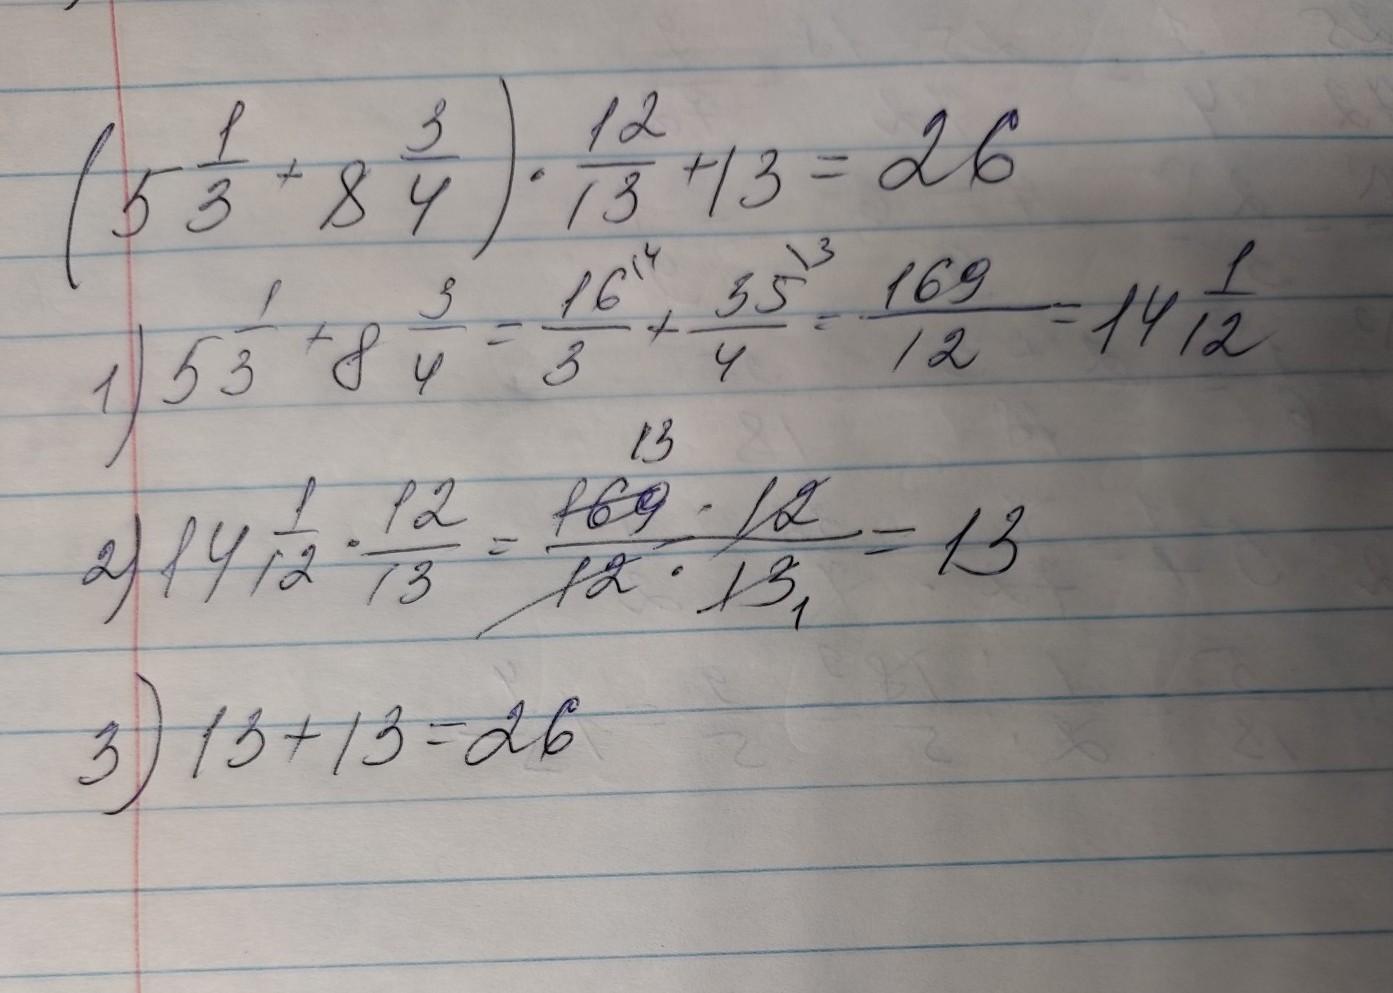 (5 1/3 + 8 3/4) · 12/13 + 13 = 26
1) 5 1/3 + 8 3/4 = 16\4/3 + 35\3/4 = 169/12 = 14 1/12
13
2) 14 1/12 · 12/13 = 169 · 12/12 · 13 1 = 13
3) 13 + 13 = 26